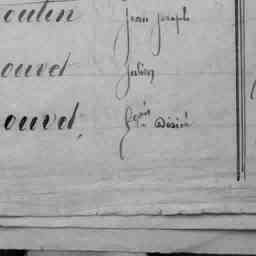 outin Jean Joseph
ouvet Julien
ouvet, Fçois Désiré